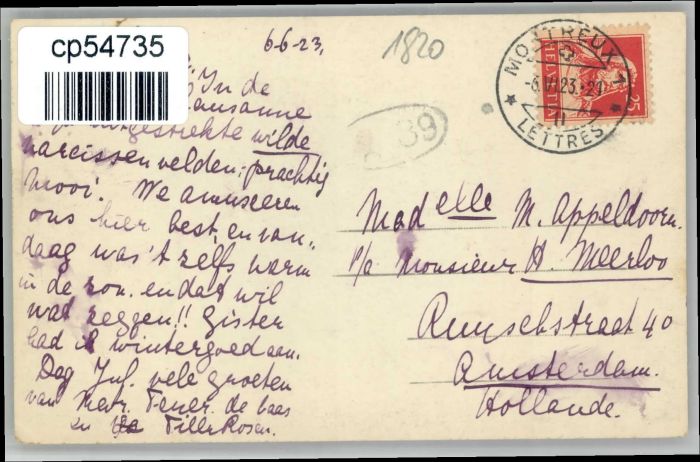 cp54735
6-6-23,
1820
In de
Lausanne
uitgestrekte wilde
narcissenvelden; prachtig
mooi. We amuseeren
ons hier best, en van-
daag was 't zelfs warm
in de zon. en dat wil
wat zeggen!! Gister
had ik wintergoed aan.
Dag Juf. vele groeten
van Mevr. de baas
en Rosen.
39
MONTREUX 1
-6.VI.23.-21
II
LETTRES
HELVETIA
25
Madelle M. Appeldoorn.
p/a Monsieur H. Meerloo
Ruyschstraat 40
Amsterdam.
Hollande.